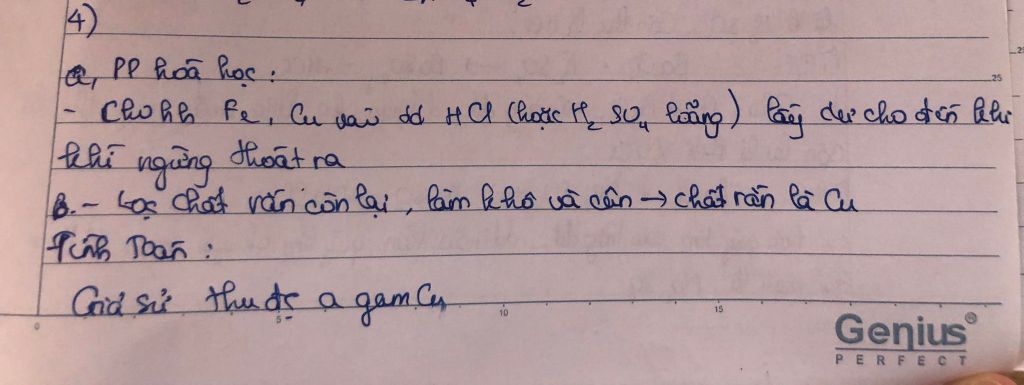 4)
a, PP hoá học :
25
- Cho hh Fe, Cu vào dd HCl (hoặc H₂SO₄ loãng) lấy dư cho đến khi
khí ngừng thoát ra
B. - Lọc chất rắn còn lại, làm khô và cân → chất rắn là Cu
Tính Toán :
Giả sử thu đc a gam Cu
0 5 10 15
Genius®
PERFECT